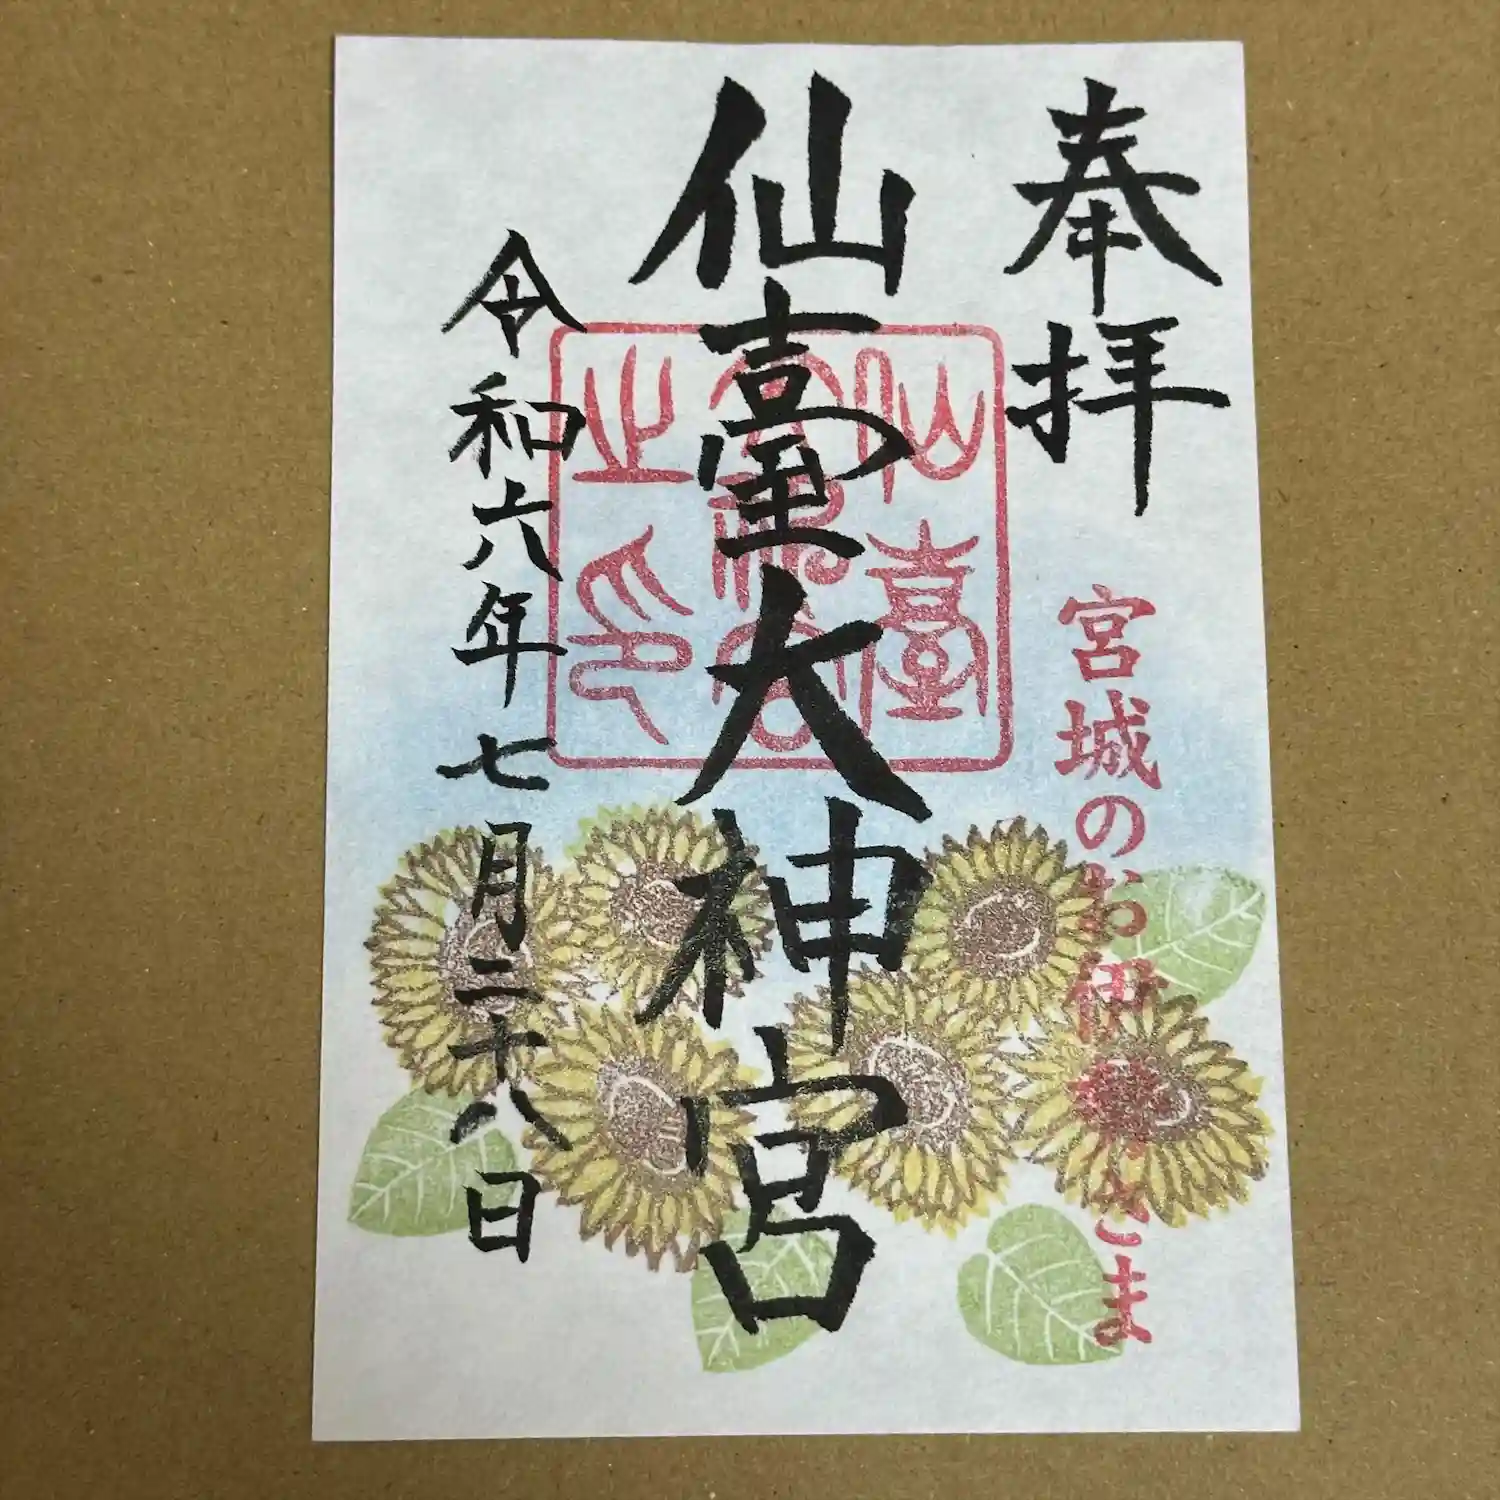 奉拝
宮城のお伊勢さま
仙臺大神宮
仙臺
大神宮
之印
令和六年七月二十八日